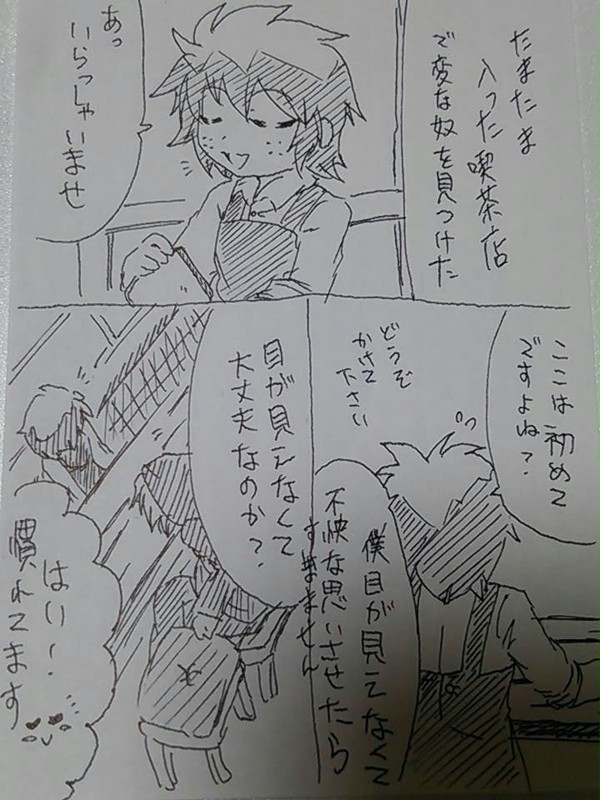 たまたま
入った喫茶店
で変な奴を見つけた
あっ
いらっしゃいませ
ここは初めて
ですよね?
どうぞ
かけて
下さい
僕目が見えなくて
不快な思いさせたら
すみません
目が見えなくて
大丈夫なのか?
はい!
慣れてます